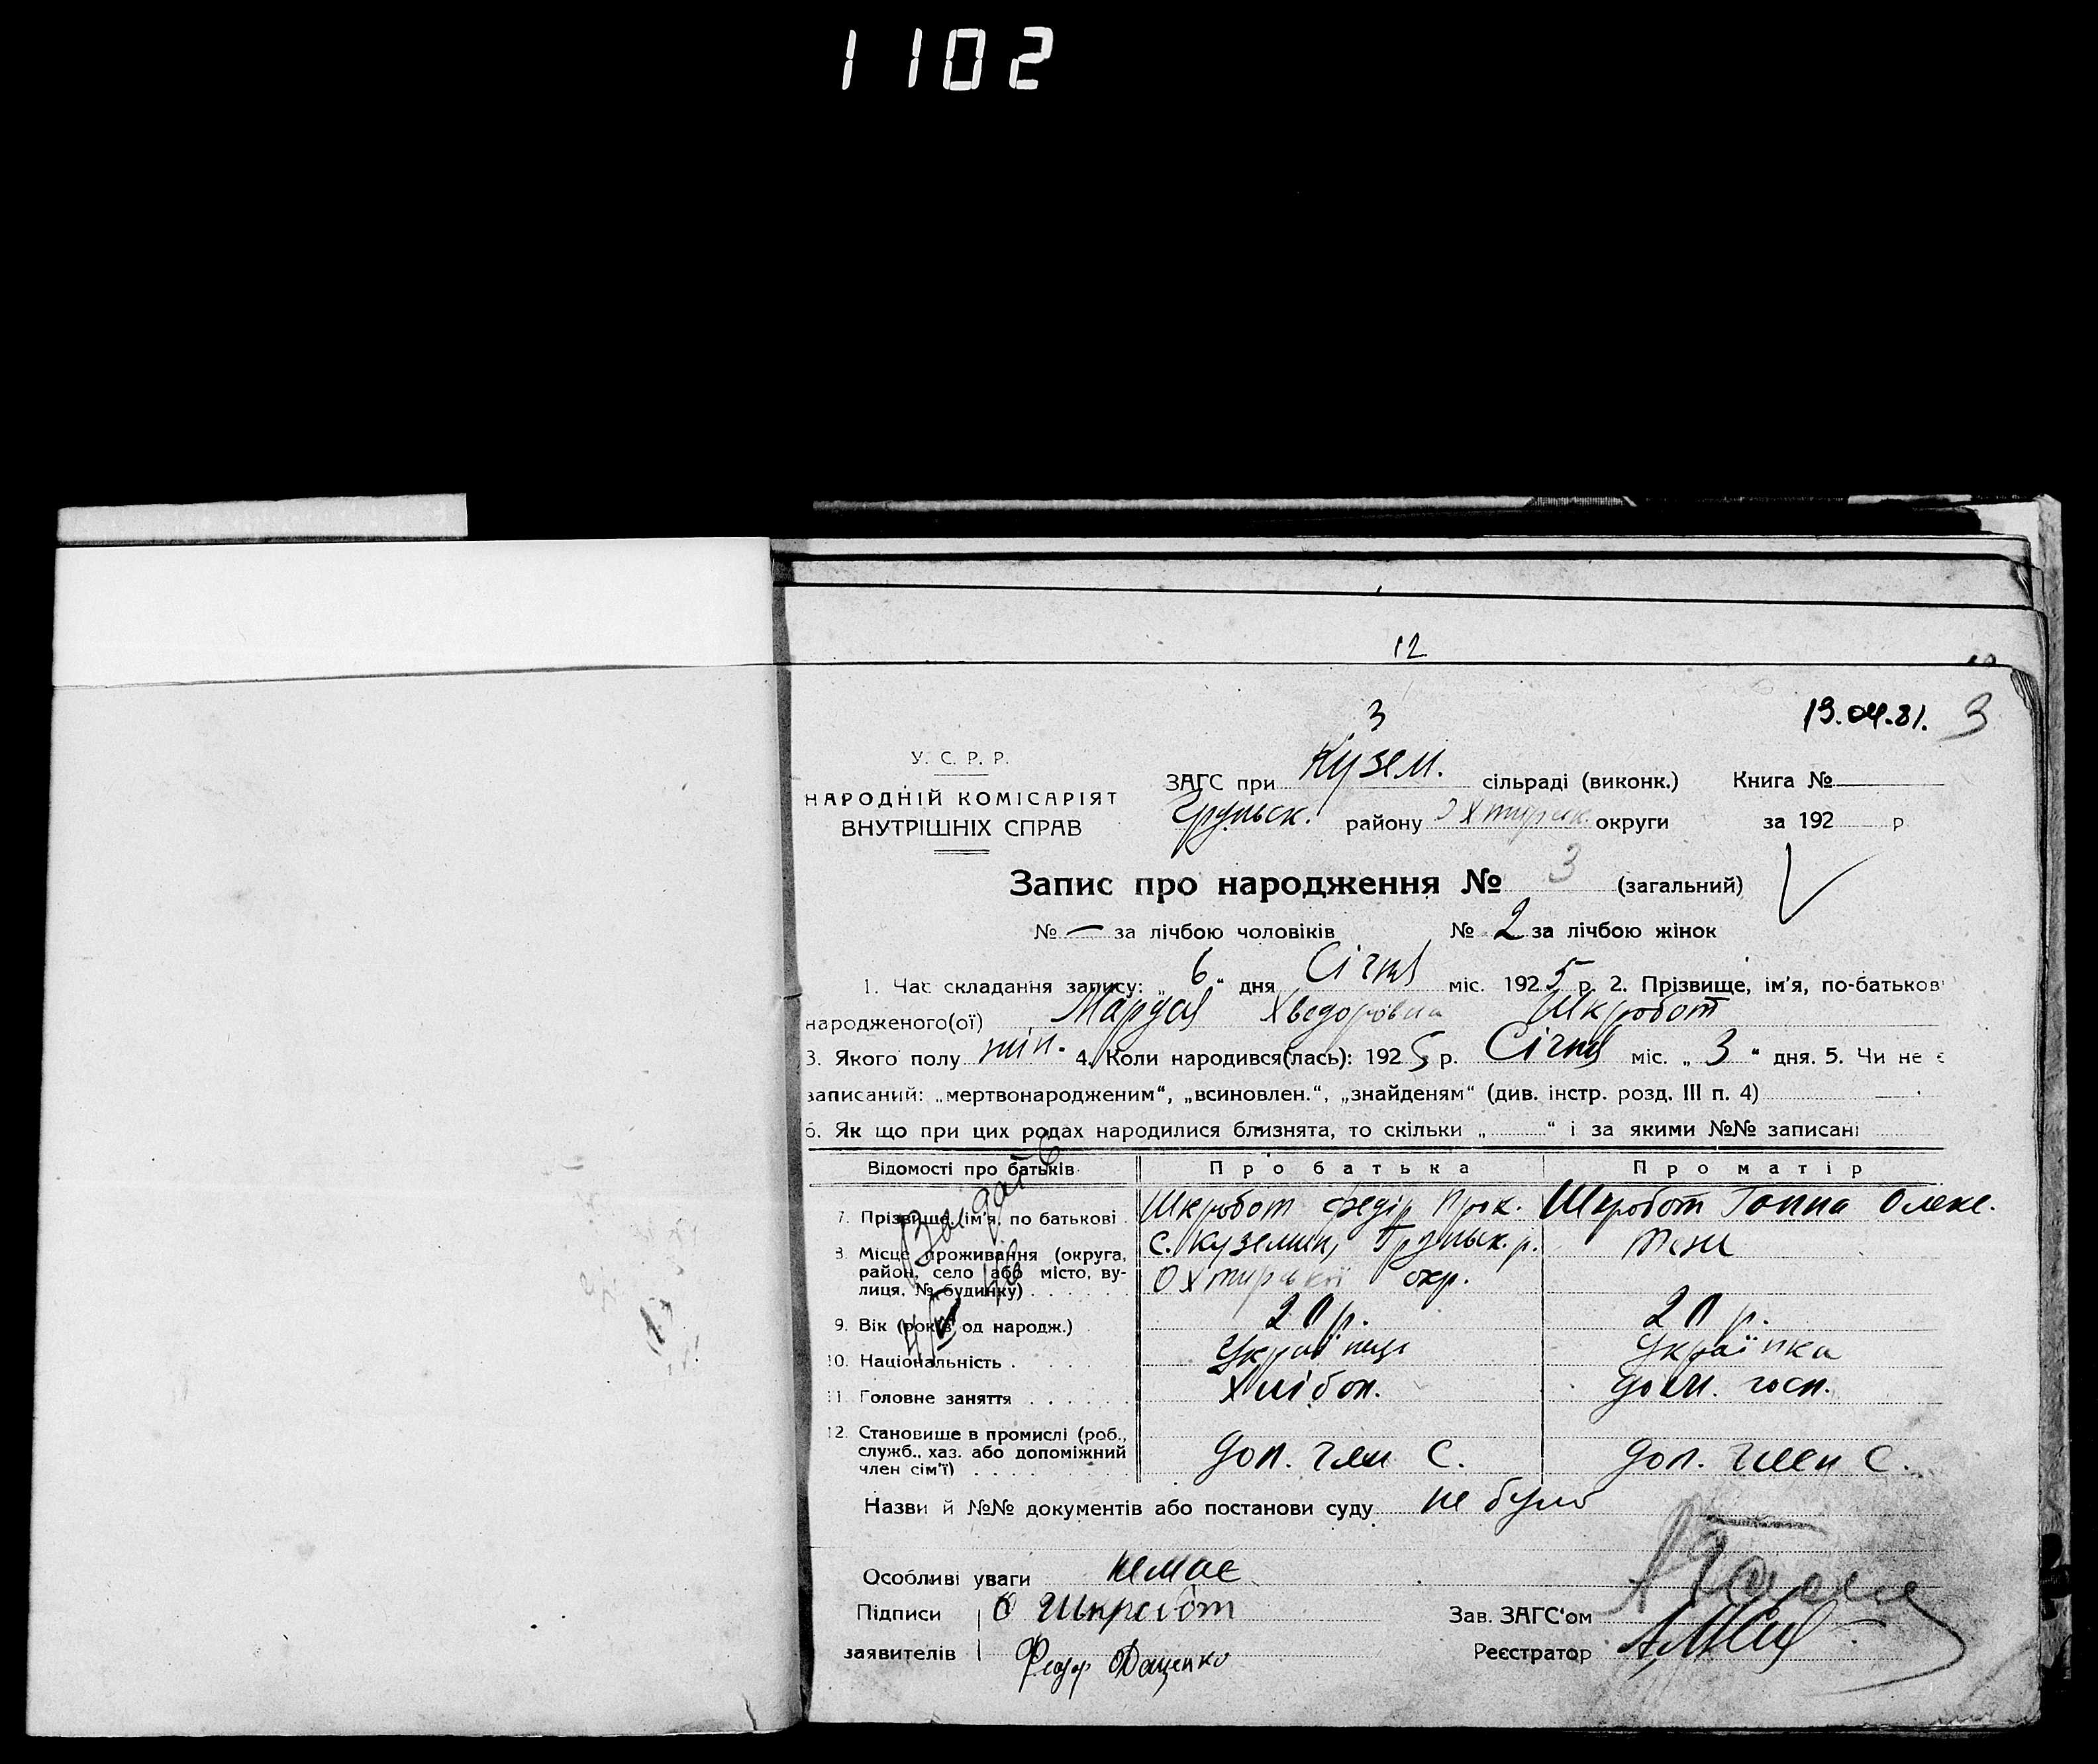 1102
12
3
13.04.81. 3
У. С. Р. Р.
НАРОДНІЙ КОМІСАРІЯТ
ВНУТРІШНІХ СПРАВ
ЗАГС при Кузем. сільраді (виконк.) Книга №
Грунськ. району Охтирськ. округи за 192 р
Запис про народження № 3 (загальний)
№ — за лічбою чоловіків № 2 за лічбою жінок
1. Час складання запису: „ 6 “ дня Січня міс. 1925 р. 2. Прізвище, ім'я, по-батькові
народженого(ої) Маруся Хведорівна Шкробот
3. Якого полу жін. 4. Коли народився(лась): 1925 р. Січня міс. „ 3 “ дня. 5. Чи не є
записаний: „мертвонародженим“, „всиновлен.“, „знайденям“ (див. інстр. розд. III п. 4) —
6. Як що при цих родах народилися близнята, то скільки „ “ і за якими №№ записані
Відомості про батьків Про батька Про матір
7. Прізвище, ім'я, по батькові Шкробот Федір Прок. Шкробот Ганна Олекс.
8. Місце проживання (округа, с. Куземин, Грунськ. р. теж
район, село або місто, ву- Охтирської окр.
лиця, № будинку)
9. Вік (років од народж.) 20 р. 20 р.
10. Національність Українець Українка
11. Головне заняття Хлібоп. дом. госп.
12. Становище в промислі (роб.,
служб., хаз. або допоміжний доп. член с. доп. член с.
член сім'ї)
Назви й №№ документів або постанови суду не було
Особливі уваги немає
Підписи Шкробот Зав. ЗАГС'ом
заявителів Федор Даценко Реєстратор